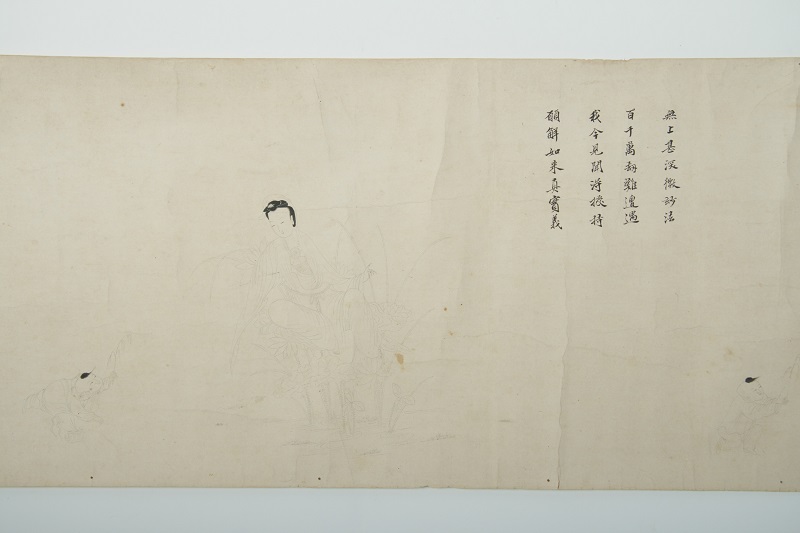 無上甚深微妙法
百千萬劫難遭遇
我今見聞得授持
願解如来真實義